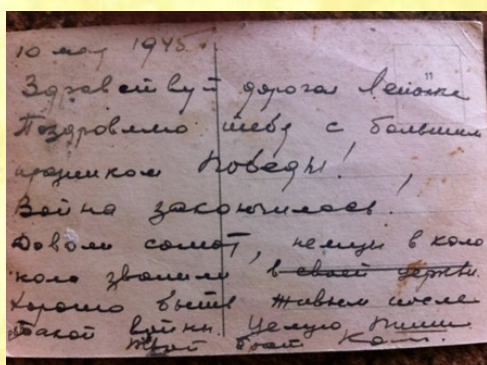 10 мая 1945.
Здравствуй дорогая
Поздровляю тебя с большим
празником Победы!
Война закончилась!
салют, немцы в коло
кола звонили в своей церкви.
Хорошо быть живым после
такой войны. Целую
Твой брат